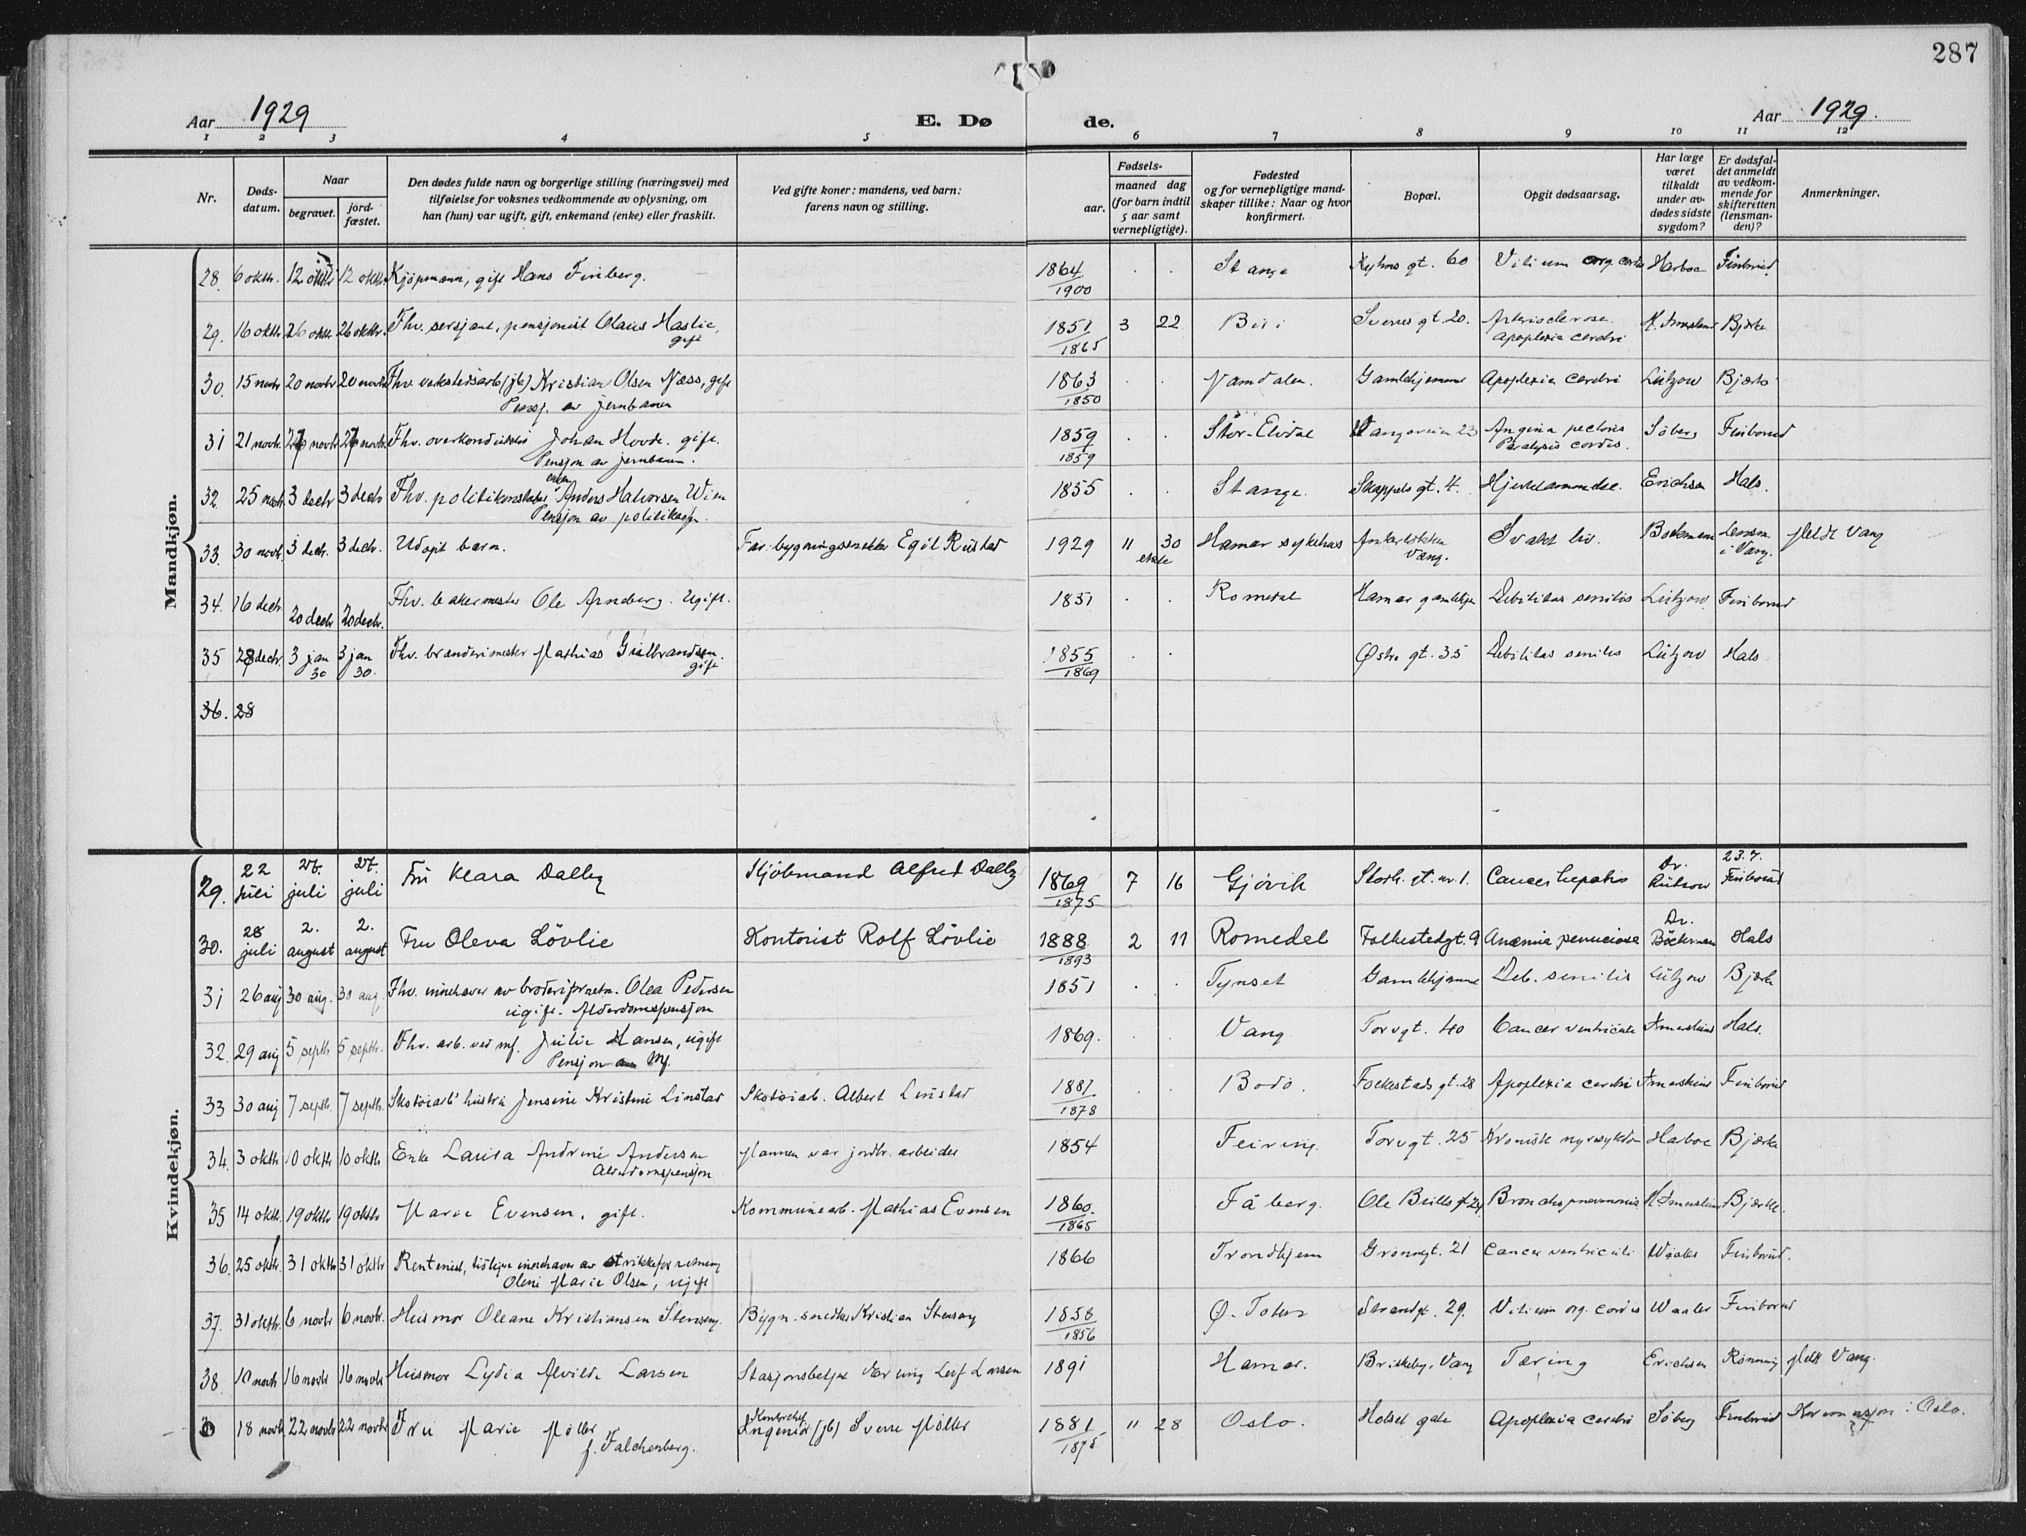 287
Aar 1929
E. Dø
de.
Aar 1929.
1 2 3 4 5 6 7 8 9 10 11 12
Nr.
Døds-
datum.
Naar
begravet.
jord-
fæstet.
Den dødes fulde navn og borgerlige stilling (næringsvei) med
tilføielse for voksnes vedkommende av oplysning, om
han (hun) var ugift, gift, enkemand (enke) eller fraskilt.
Ved gifte koner: mandens, ved barn:
farens navn og stilling.
aar.
Fødsels-
maaned dag
(for barn indtil
5 aar samt
vernepligtige).
Fødested
og for vernepligtige mand-
skaper tillike: Naar og hvor
konfirmert.
Bopæl.
Opgit dødsaarsag.
Har læge
været
tilkaldt
under av-
dødes sidste
sygdom?
Er dødsfal-
det anmeldt
av vedkom-
mende for
skifteretten
(lensman-
den)?
Anmerkninger.
Mandkjøn.
28. 6 oktbr. 12 oktbr 12 oktbr Kjøpmann, gift Hans Finberg. 1864 . . Stange gt. 60 Vitium org. cordis Harboe Finborud
1900
29. 16 oktbr 26 oktbr 26 oktbr. Fhv. sersjant, pensjonist Olaus Haslie, 1851 3 22 Biri Sverres gt. 20. Arteriosclerose. Bjerke
gift 1865 Apoplexia cerebri
30. 15 novbr 20 novbr 20 novbr Fhv. verkstedsarb (jb) Kristian Olsen Næss, gift 1863 . . Namdalen. Gamlehjemmet Apoplexia cerebri Lützow Bjerke
Pensj. av jernbanen 1850
31 21 novbr. novbr novbr. Fhv. overkonduktør Johan Hovde. gift. 1859 . . Stor-Elvdal 23 Angina pectoris Søberg Finborud
Pensjon av jernbanen. 1859 Paralysis cordis.
32. 25 novb 3 decbr 3 decbr Fhv. politikonstabel Anders Halvorsen Wien 1855 . . Stange. Skappels gt. 4. Hjertelammelse. Erichsen Hals.
Pensjon av politikassen.
33. 30 novb. 3 decbr. 3 decbr. Udøpt barn. Far: bygningssnekker Egil Rustad 1929 11 30 Hamar sykehus Ankerløkken Svakt liv. Boekman Lensm. Meldt Vang
ekte Vang. i Vang.
34. 16 decbr. 20 decbr 20 decbr. Fhv. bakermester Ole Arneberg. Ugift. 1831 . . Romedal Hamar gamlehje Debilitas senilis Lützow. Finborud
35 28 decbr 3 jan 3 jan Fhv. branderimester Mathias Gulbrandsen. 1855 . . Østre gt. 35 Debilitas senilis Lützow Hals
30 30. gift 1869
36. 28
Kvindekjøn.
29. 22 juli 27. juli 27. juli Fru Klara Dalby Kjöbmand Alfred Dalby 1869 7 16 Gjövik Storh. gt. nr. 1. Cancer hepatis Dr. Lützow 23.7. Finborud
1875
30. 28 juli 2. august 2. august Fru Oleva Lövlie Kontorist Rolf Lövlie 1888 2 11 Romedal Folkestedgt. 9 Anæmia perniciosa Dr. Böckman Hals
1893
31 26 aug 30 aug. 30 aug. Fhv. innehaver av broderiforretn. Olea Pedersen 1851 . . Tynset Gamlehjemmet Deb. senilis Lützow Bjerke
ugift. Alderdomspensjon
32. 29 aug 5 septb 5 septbr. Fhv. arb. ved mf. Julie Hansen, ugift 1869. . . Vang Torvgt. 40 Cancer ventriculi Hals.
Pensjon av Mf.
33 30 aug 7 septb. 7 septbr. Skotøiarb' hustru Jensine Kristine Linstad Skotøiarb. Albert Linstad 1881 . . Bodø. Folkestads gt. 28 Apoplexia cerebri Finborud
1878
34. 3 oktb 10 oktb 10 oktb Enke Laura Andrine Andersen Mannen var jordbr. arbeider 1854 Feiring. Torvgt. 25 Kronisk nyresykdom Haboe Bjerke
Alderdomspensjon
35 14 oktb. 19 oktbr 19 oktbr Marie Evensen, gift. Kommunearb. Mathias Evensen 1860. Fåberg. Ole Bulls gt 24. Bronchopneumonia Bjerke.
1865
36. 25 oktb. 31 oktbr 31 oktbr Rentenist, tidligere innehaver av strikkeforretning 1866 Trondhjem Grønnegt. 21 Cancer ventriculi Waaler Finborud.
Oline Marie Olsen, ugift
37. 31 oktbr. 6 novbr 6 novbr. Husmor Oleane Kristiansen Stenseng. Bygn. snedker Kristian Stenseng 1858 Ø. Toten Strandgt. 29. Vitium org. cordis Waaler Finborud
1856
38. 10 novb 16 novbr 16 novbr Husmor Lydia Alvilde Larsen Stasjonsbetjent Erling Leif Larsen 1891 Hamar. Briskeby, Vang Tæring Erichsen Rønning Meldt Vang.
18 novb 22 novbr 22 novbr Fru Marie Møller Kontorchef Ingeniør (jb) Sverre Møller 1881 11 28 Oslo. Holset gate Apoplexia cerebri Søberg Finborud Kremasjon i Oslo.
f. Falchenberg. 1875